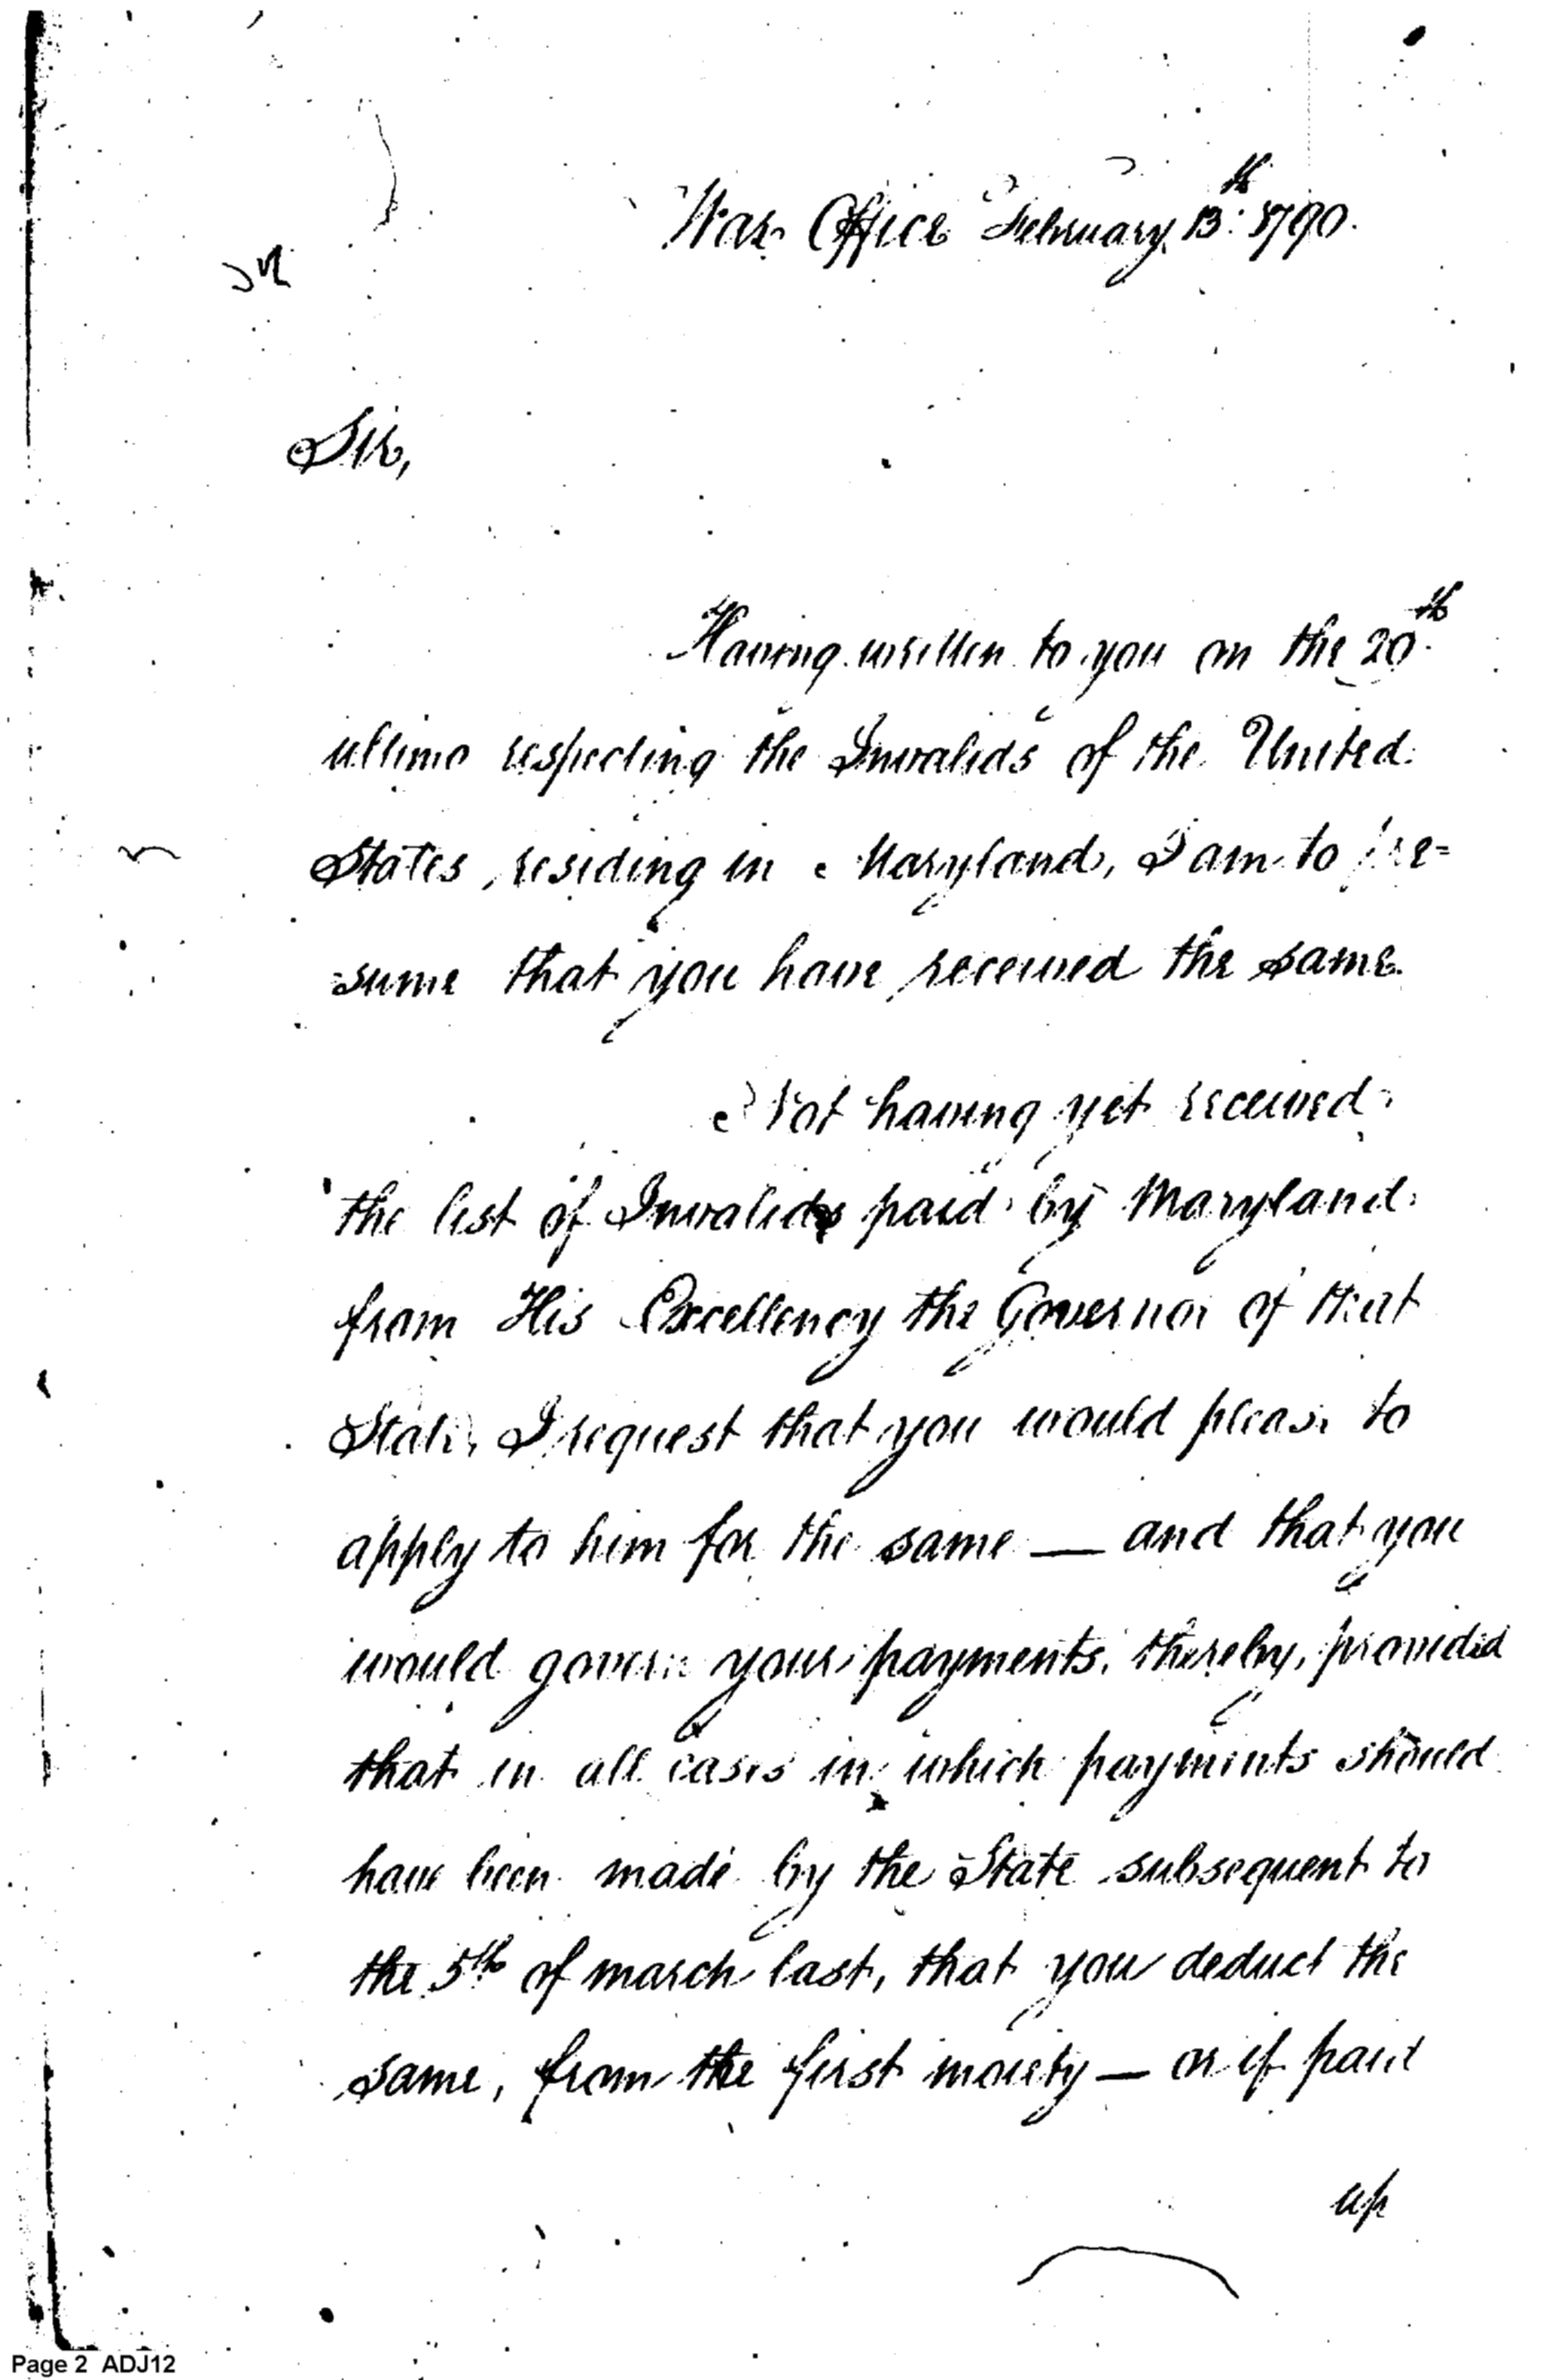 War Office February 13th: 1790.
Sir,
Having written to you on the 20th.
ultimo respecting the Invalids of the United
States, residing in Maryland, I am to pre=
=sume that you have received the same.
Not having yet received
the list of Invalids paid by Maryland
from His Excellency the Governor of that
State, I request that you would please to
apply to him for the same — and that you
would govern your payments thereby, provided
that in all cases in which payments should
have been made by the State subsequent to
the 5th of march last, that you deduct the
same, from the first moiety — or if paid
up
Page 2 ADJ12